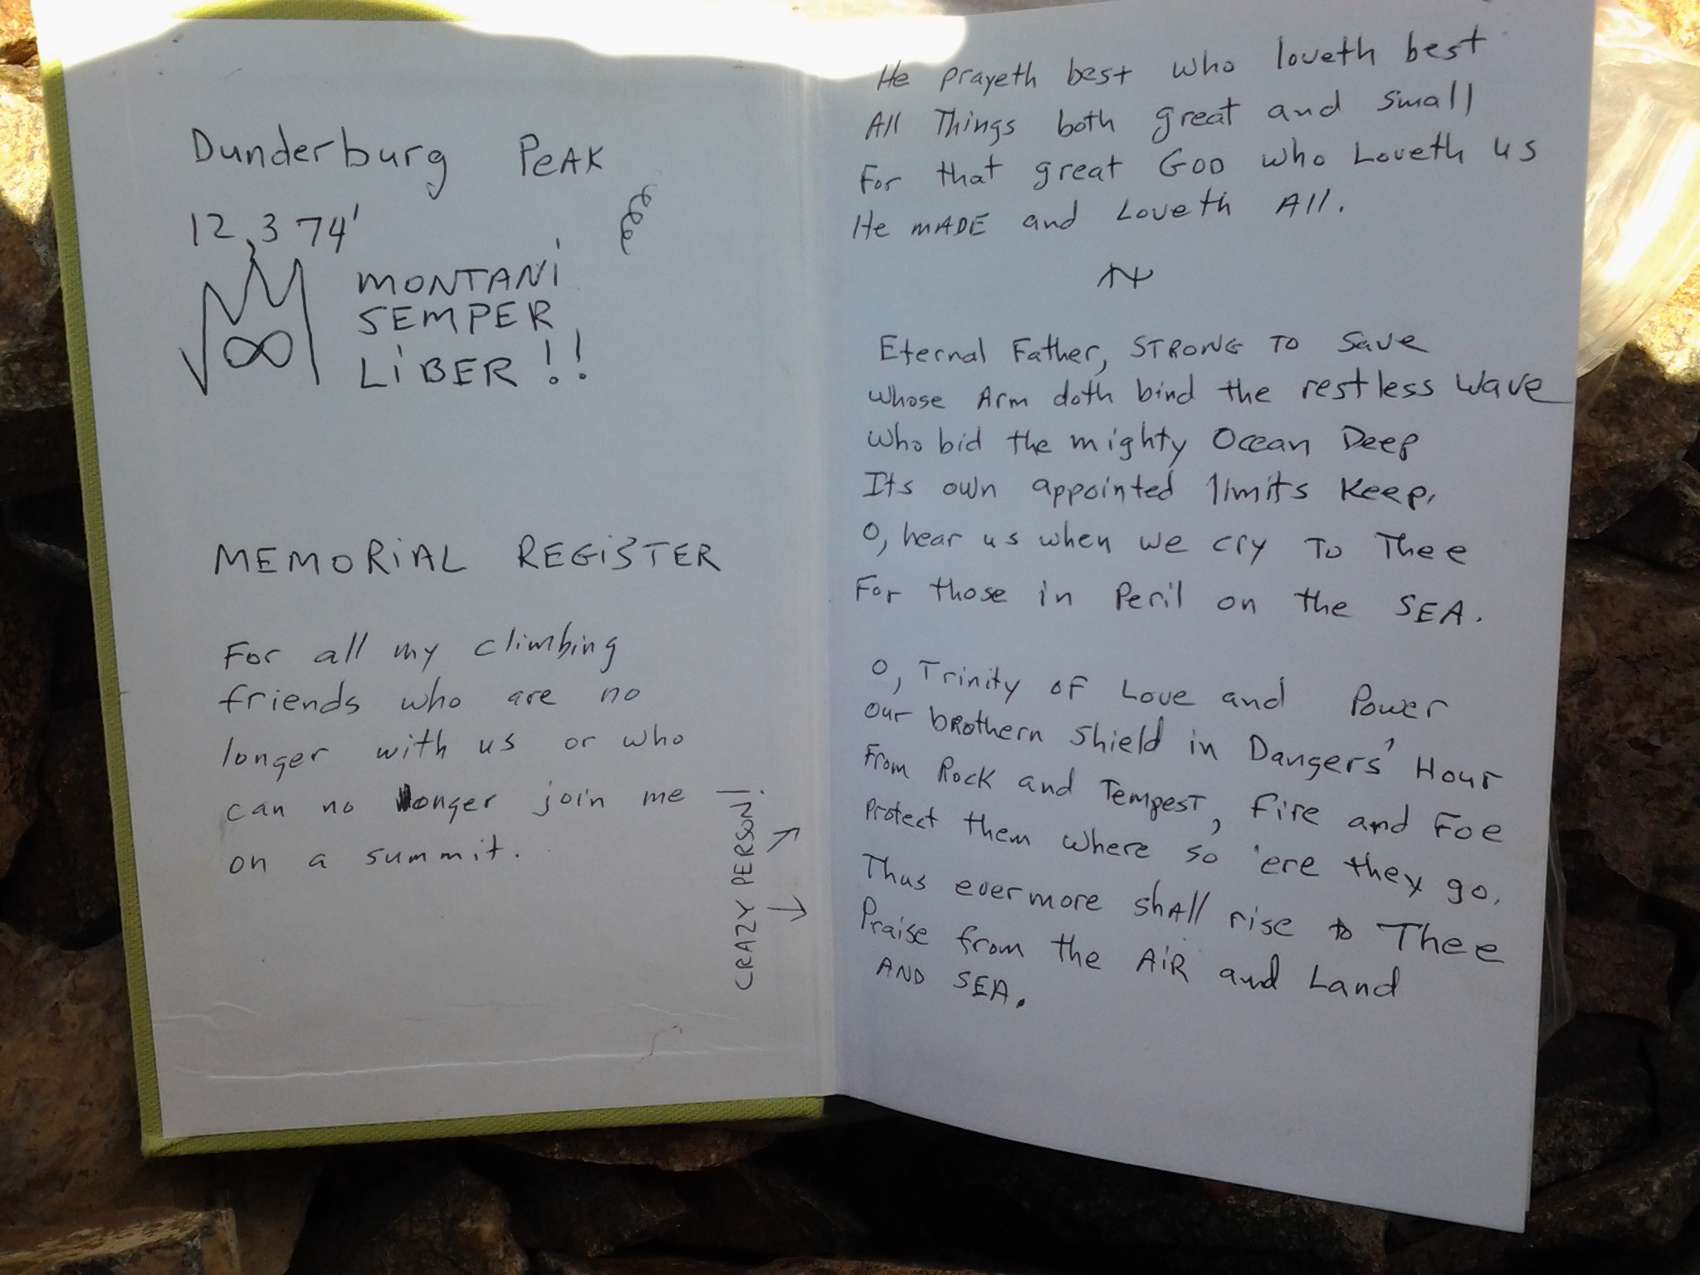 Dunderburg PeAK
12,374'
∞
MONTANi
SEMPER
LiBER!!
MEMORiAL REGiSTER
For all my climbing
friends who are no
longer with us or who
can no longer join me
on a summit.
CRAZY PERSON!
He prayeth best who loveth best
All Things both great and small
For that great GOD who Loveth us
He MADE and Loveth All.
Eternal Father, STRONG TO Save
whose Arm doth bind the restless wave
Who bid the mighty Ocean Deep
Its own appointed limits Keep,
O, hear us when we cry To Thee
For those in Peril on the SEA.
O, Trinity of Love and Power
Our brothern shield in Dangers' Hour
From Rock and Tempest, Fire and Foe
Protect them where so 'ere they go.
Thus evermore shAll rise to Thee
Praise from the AiR and Land
AND SEA.